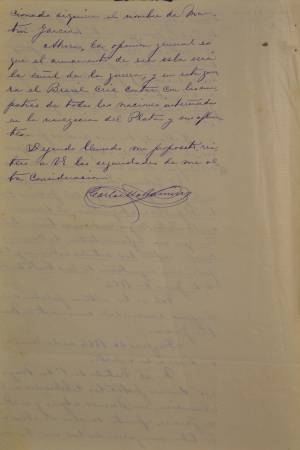 cionado seguirá el nombre de Mar-
tin Garcia.
Ahora, la opinion general es
que el armamento de esa isla será
la señal de la guerra, y en esta gue-
rra el Brasil cree contar con las sim-
patias de todas las naciones interesadas
en la navegacion del Plata y sus afluen-
tes.
Dejando llenado mi proposito, rei-
tero a VE las seguridades de mi al-
ta consideracion.